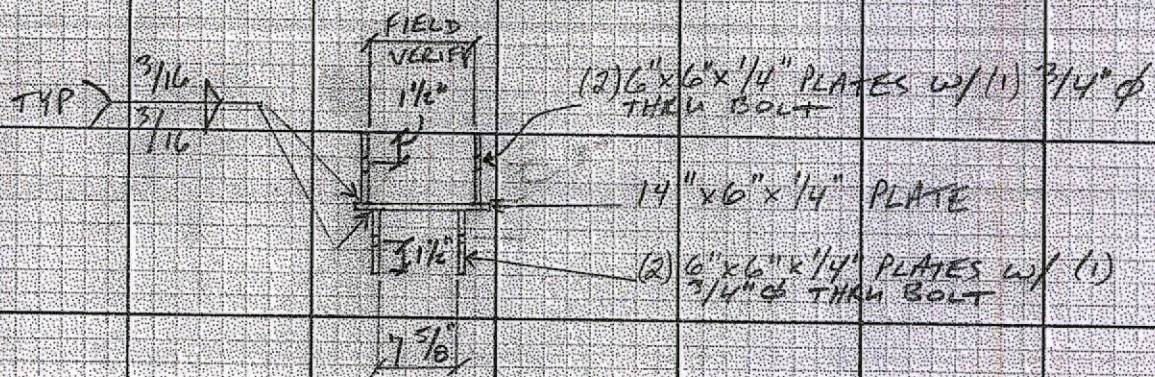 FIELD
VERIFY
3/16
TYP
3/16
1 1/2"
(2) 6"x6"x1/4" PLATES w/ (1) 3/4" φ
THRU BOLT
14"x6"x1/4" PLATE
1 1/2"
(2) 6"x6"x1/4" PLATES w/ (1)
3/4" φ THRU BOLT
7 5/8"